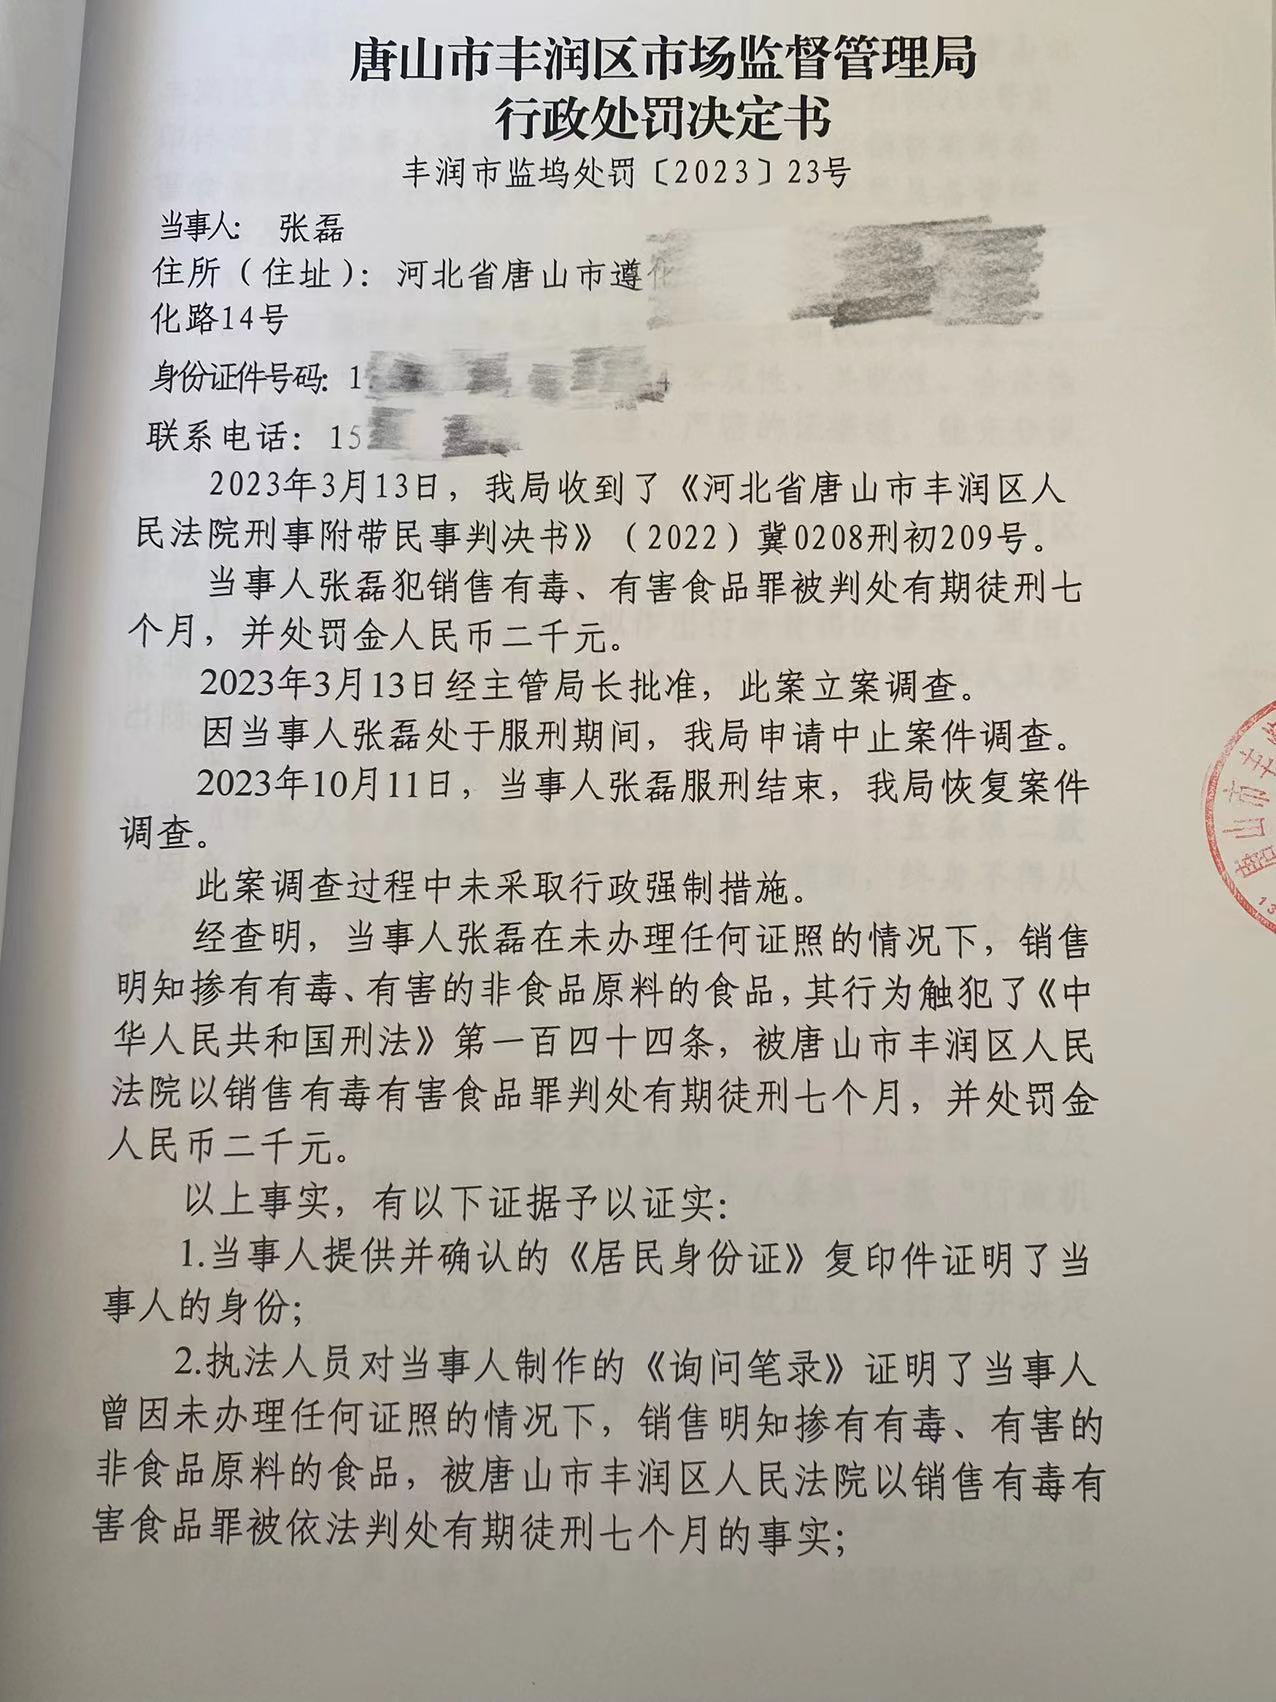 唐山市丰润区市场监督管理局
行政处罚决定书
丰润市监坞处罚〔2023〕23号
当事人: 张磊
住所（住址）: 河北省唐山市遵化
化路14号
身份证件号码: 1 4
联系电话: 15
2023年3月13日，我局收到了《河北省唐山市丰润区人
民法院刑事附带民事判决书》（2022）冀0208刑初209号。
当事人张磊犯销售有毒、有害食品罪被判处有期徒刑七
个月，并处罚金人民币二千元。
2023年3月13日经主管局长批准，此案立案调查。
因当事人张磊处于服刑期间，我局申请中止案件调查。
2023年10月11日，当事人张磊服刑结束，我局恢复案件
调查。
此案调查过程中未采取行政强制措施。
经查明，当事人张磊在未办理任何证照的情况下，销售
明知掺有有毒、有害的非食品原料的食品，其行为触犯了《中
华人民共和国刑法》第一百四十四条，被唐山市丰润区人民
法院以销售有毒有害食品罪判处有期徒刑七个月，并处罚金
人民币二千元。
以上事实，有以下证据予以证实:
1.当事人提供并确认的《居民身份证》复印件证明了当
事人的身份;
2.执法人员对当事人制作的《询问笔录》证明了当事人
曾因未办理任何证照的情况下，销售明知掺有有毒、有害的
非食品原料的食品，被唐山市丰润区人民法院以销售有毒有
害食品罪被依法判处有期徒刑七个月的事实;
唐山市丰
13